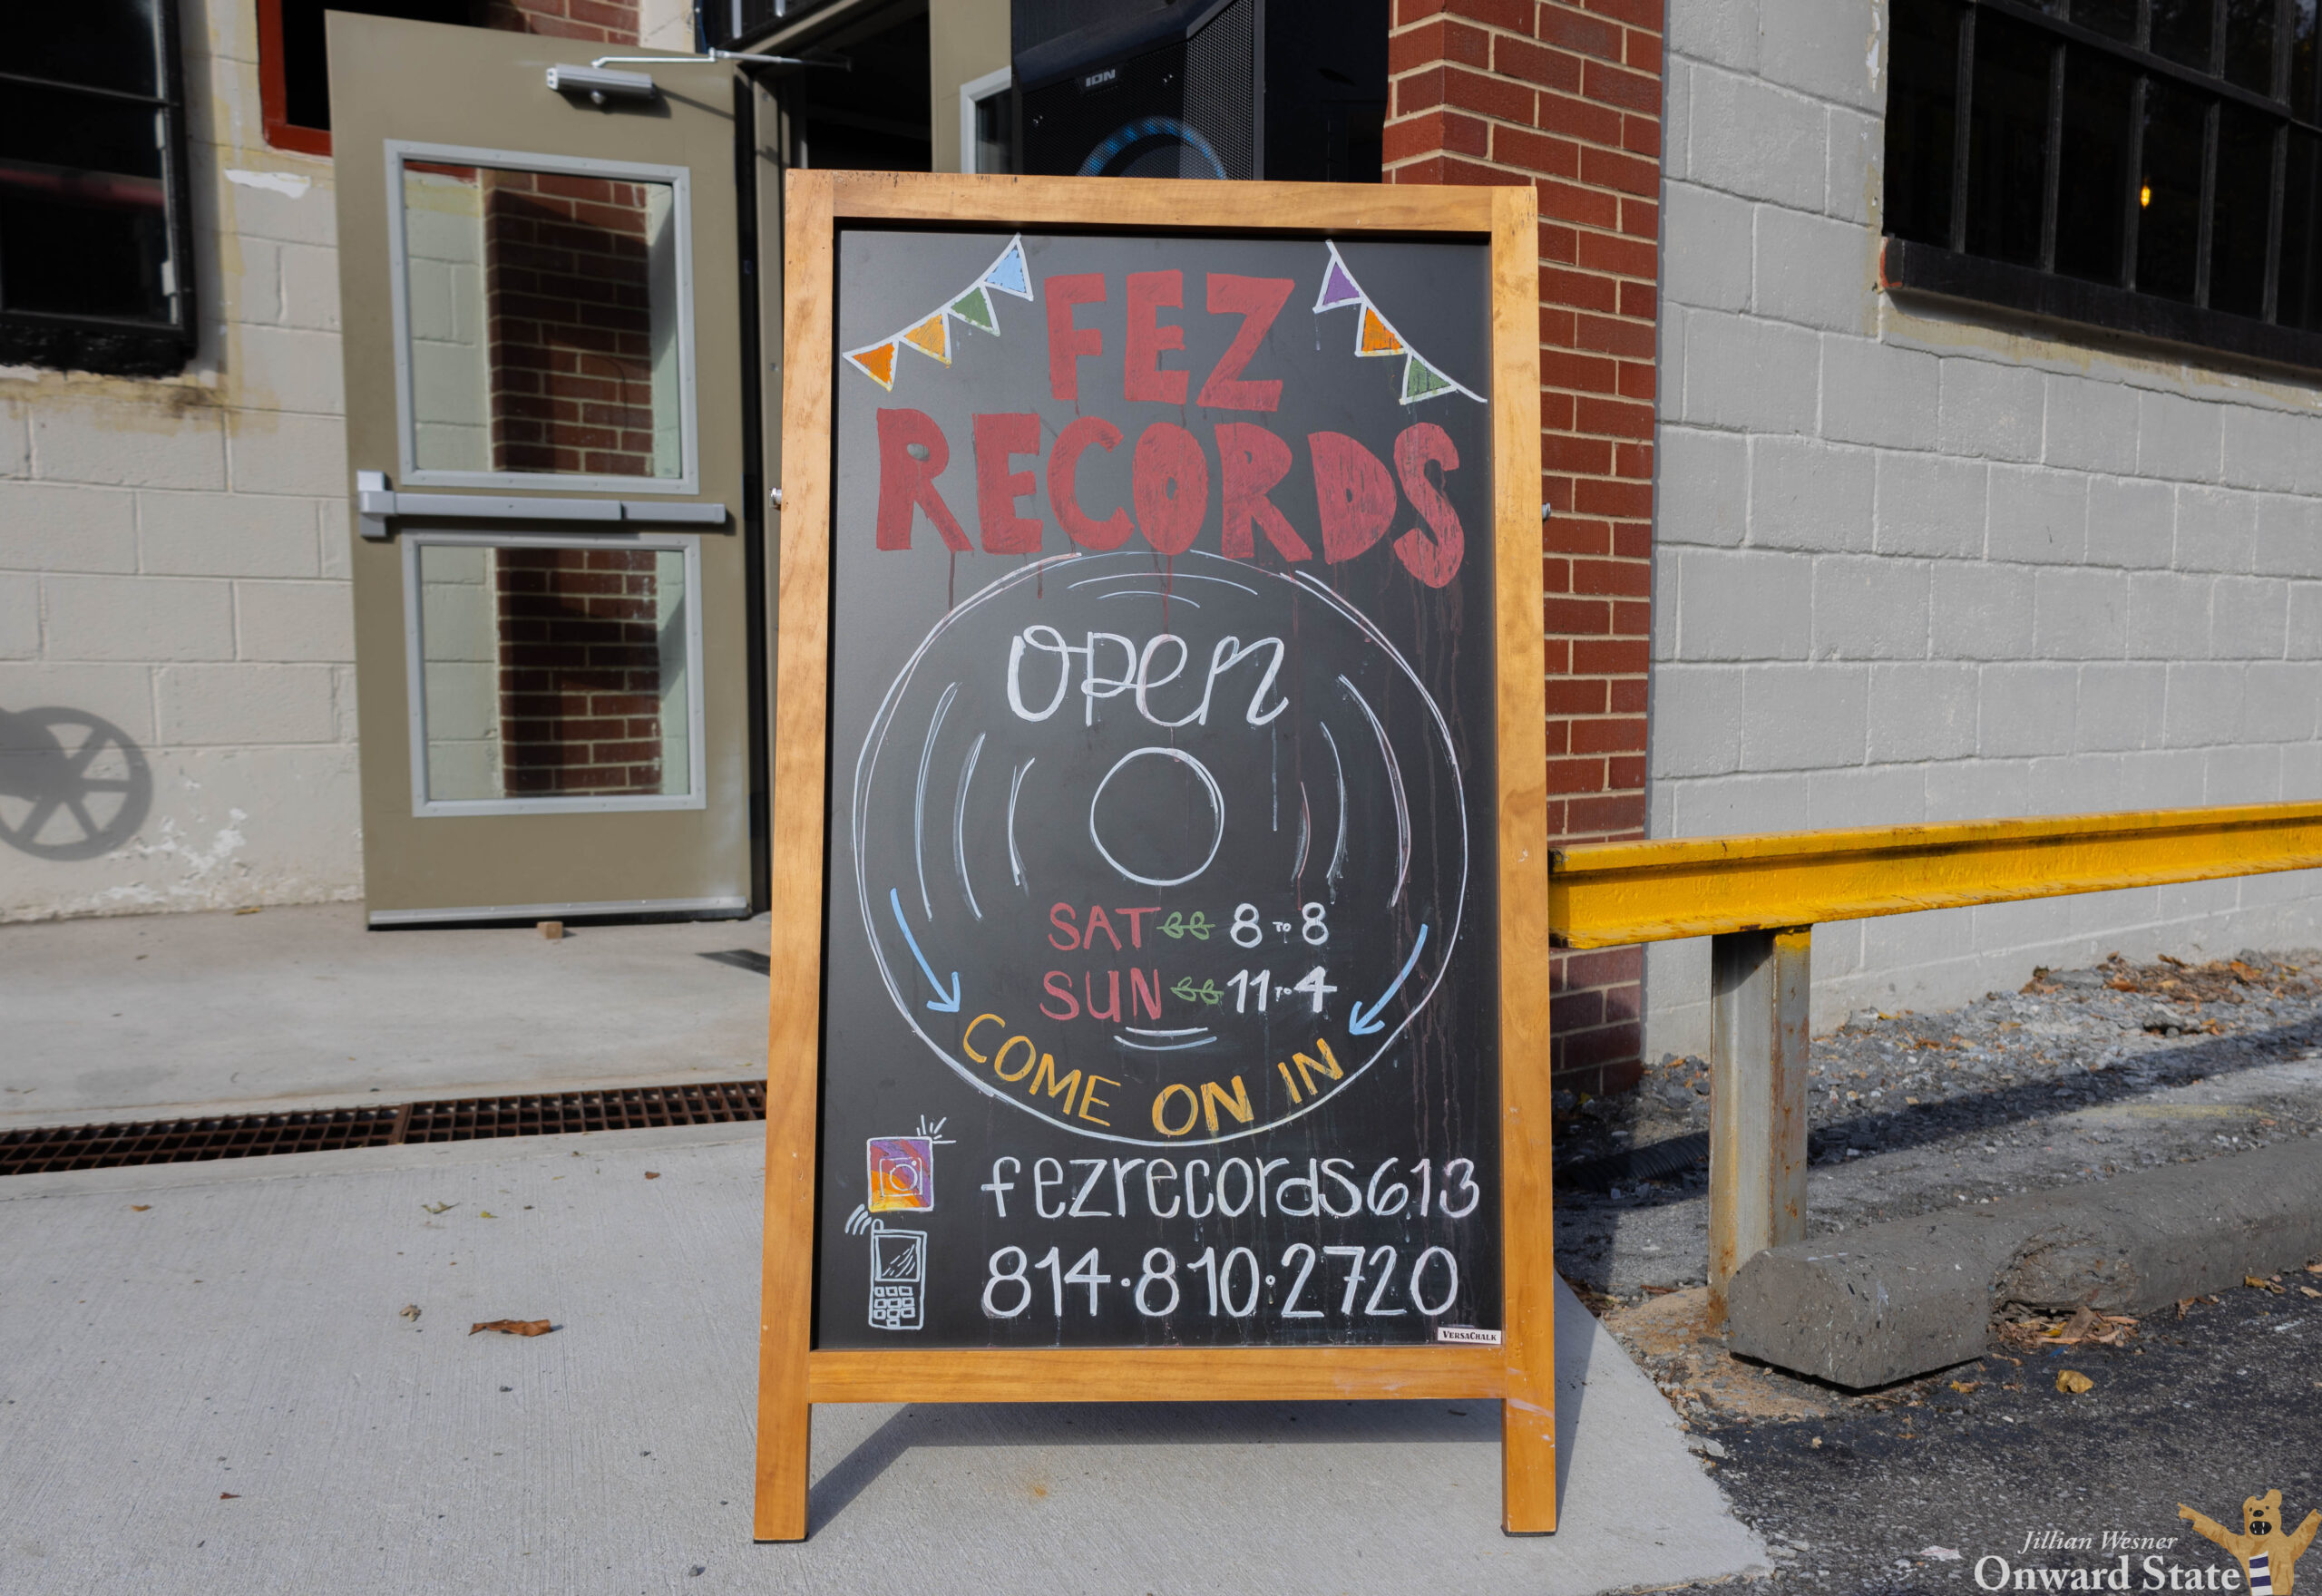 ION
FEZ
RECORDS
open
SAT 8 TO 8
SUN 11 TO 4
COME ON IN
fezrecords613
814·810·2720
VERSACHALK
Jillian Wesner
Onward State